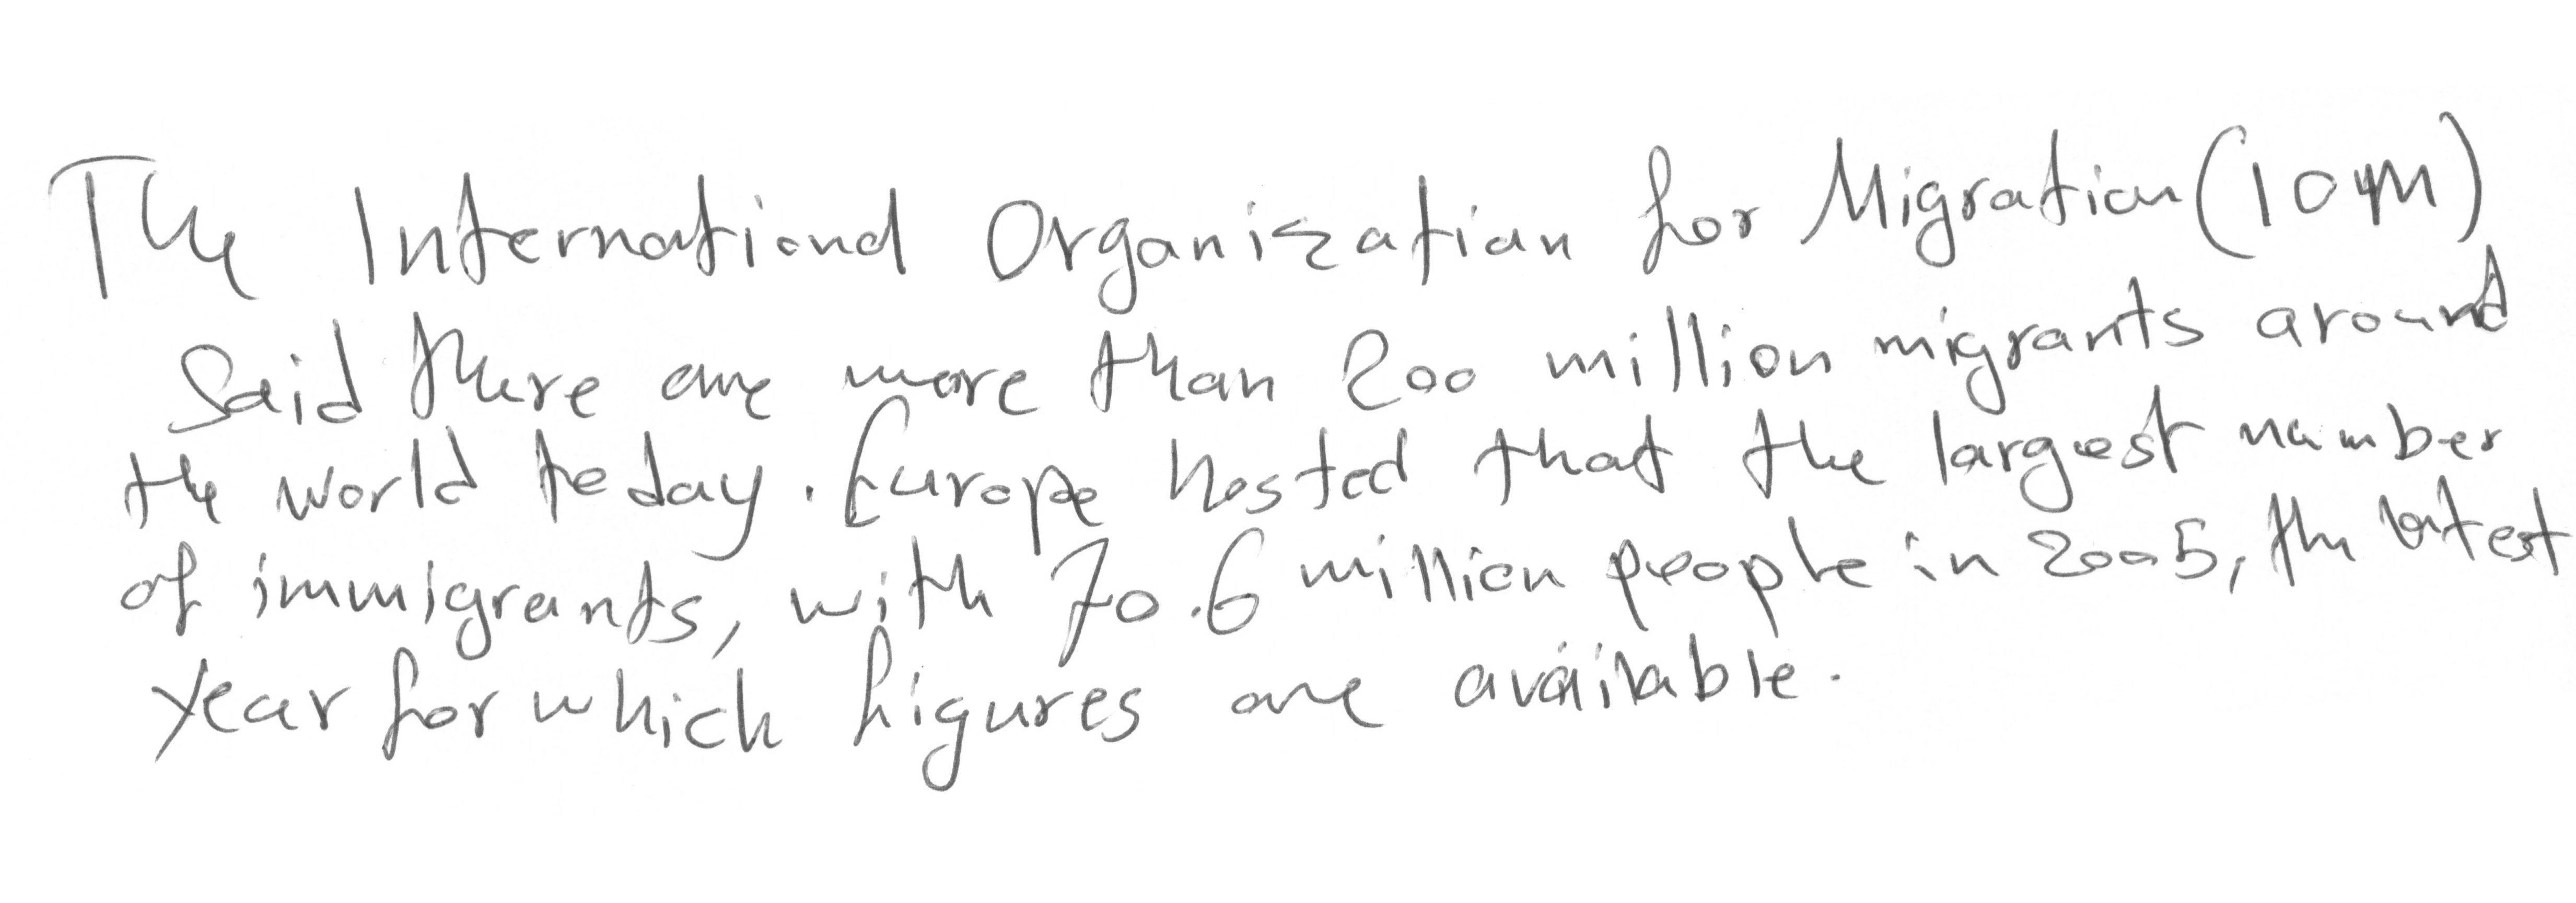 The International Organization for Migration (IOM)
said there are more than 200 million migrants around
the world today. Europe hosted that the largest number
of immigrants, with 70.6 million people in 2005, the latest
year for which figures are available.